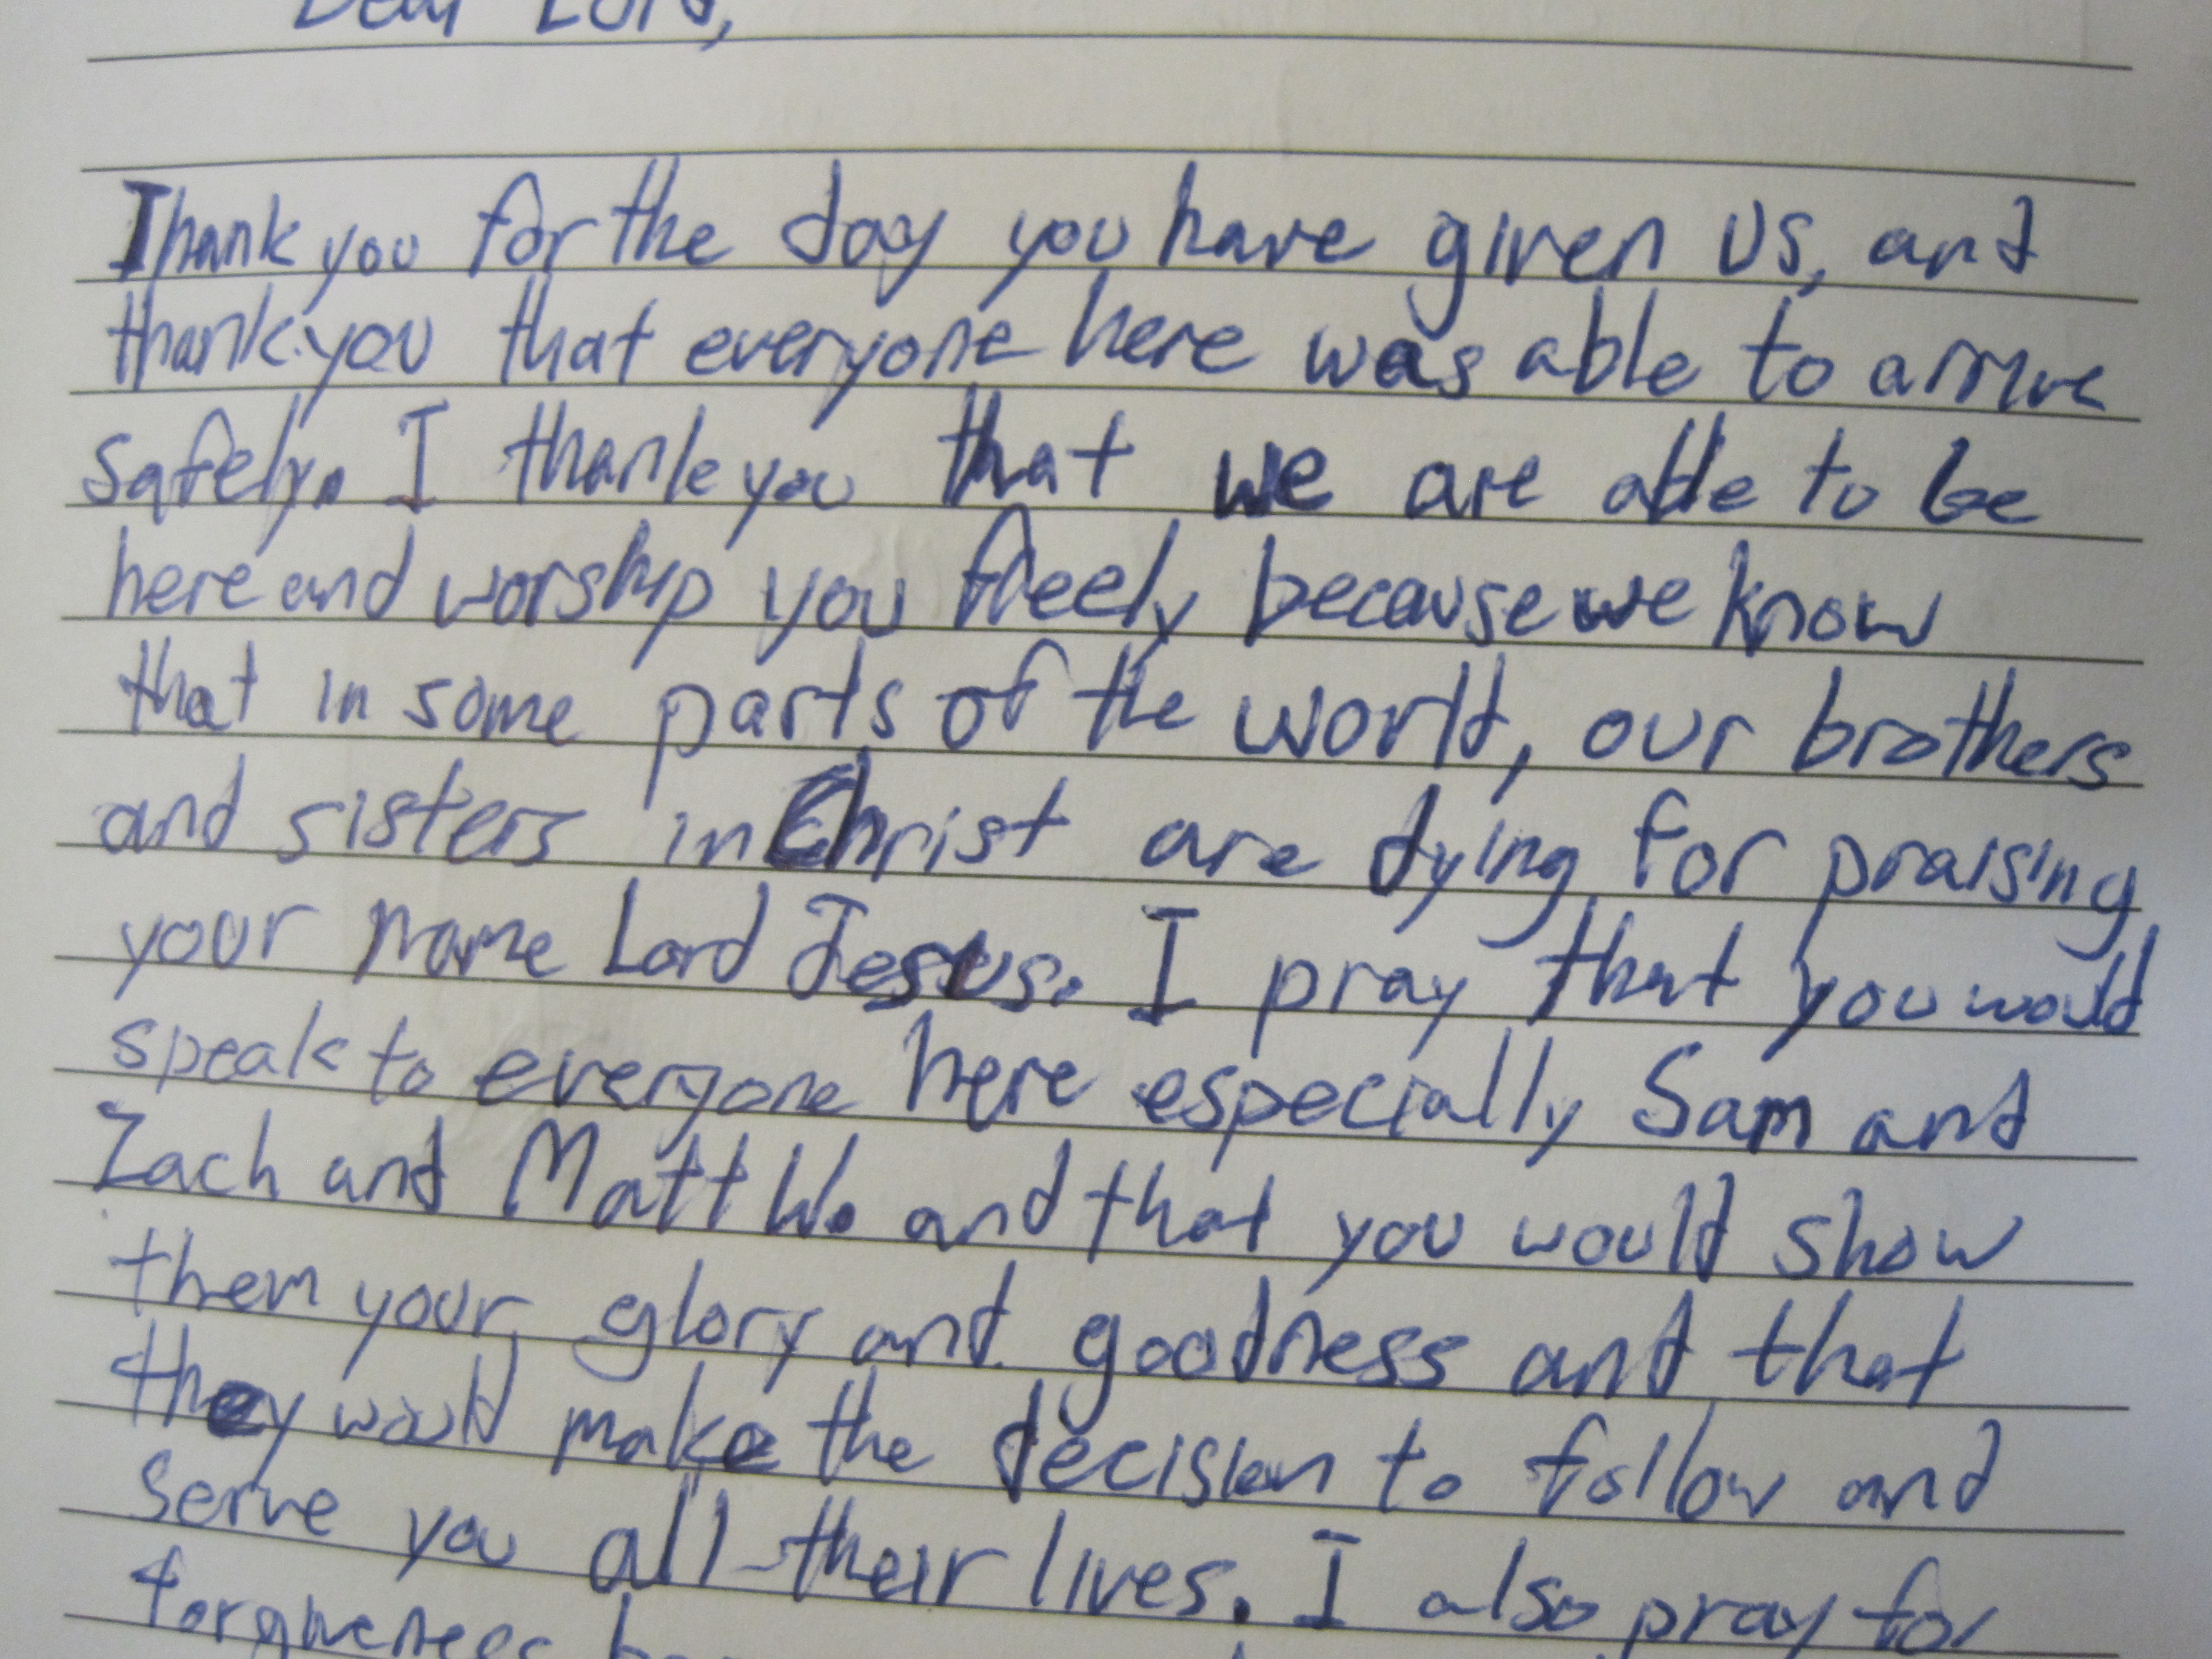 Dear Lord,
Thank you for the day you have given us, and
thank you that everyone here was able to arrive
safely. I thank you that we are able to be
here and worship you freely because we know
that in some parts of the world, our brothers
and sisters in Christ are dying for praising
your name Lord Jesus. I pray that you would
speak to everyone here especially Sam and
Zach and Matt W. and that you would show
them your glory and goodness and that
they would make the decision to follow and
serve you all their lives. I also pray for
forgiveness